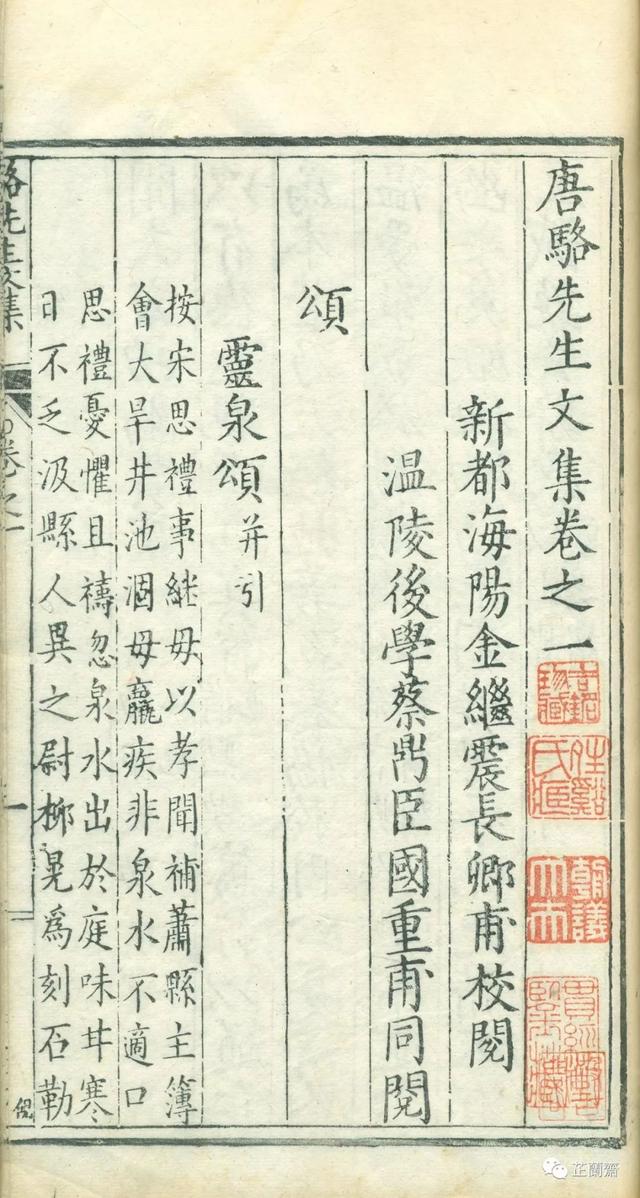 唐駱先生文集卷之一
新都海陽金繼震長卿甫校閱
温陵後學蔡鼎臣國重甫同閱
頌
靈泉頌并引
按宋思禮事継毋以孝聞補蕭縣主簿
會大旱井池涸毋羸疾非泉水不適口
思禮憂懼且禱忽泉水出於庭味甘寒
日不乏汲縣人異之尉柳晃爲刻石勒
駱先生文集
卷之一
一
倪
朝議
大夫
芷蘭齋